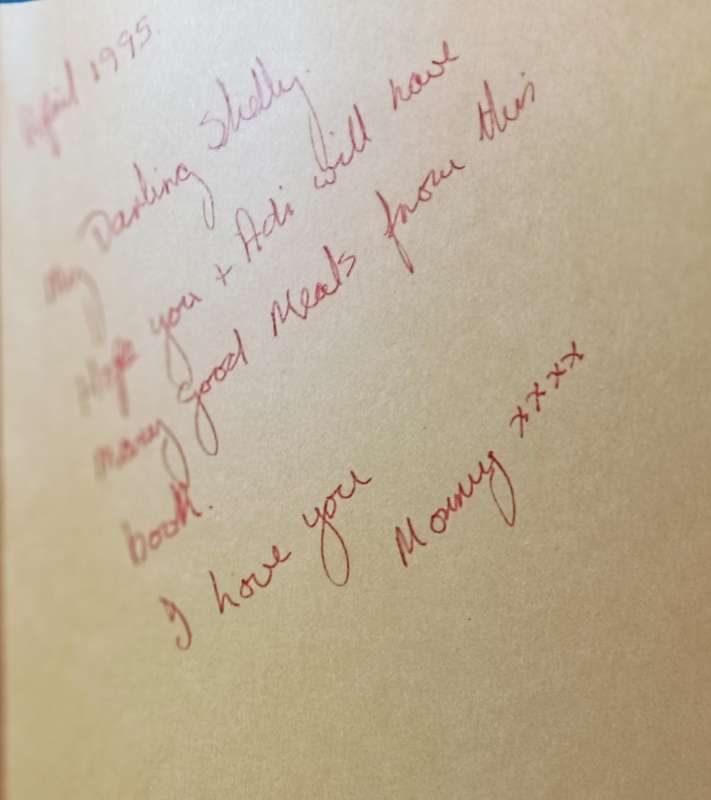 April 1995.
My Darling Shelly.
Hope you + Adi will have
many good Meals from this
book.
I love you
Mommy xxxx